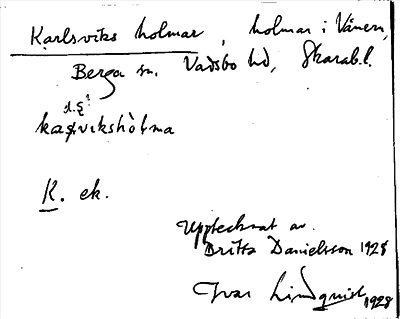 Karlsviks holmar, holmar i Vänern,
Berga sn. Vadsbo hd, Skarab.l.
d.s̨
kaşvikshòlma
K. ek.
Upptecknat av
Britta Danielsson 1928
Ivar Lindquist 1928